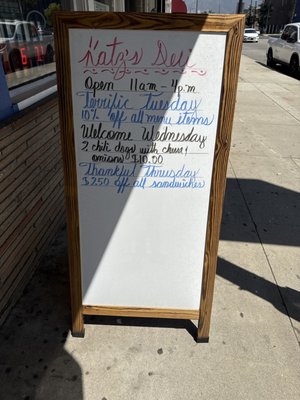 Katz's Deli
Open 11am - 4pm
Terrific Tuesday
10% off all menu items
Welcome Wednesday
2 chili dogs with cheese &
onions $10.00
Thankful Thursday
$2.50 off all sandwiches